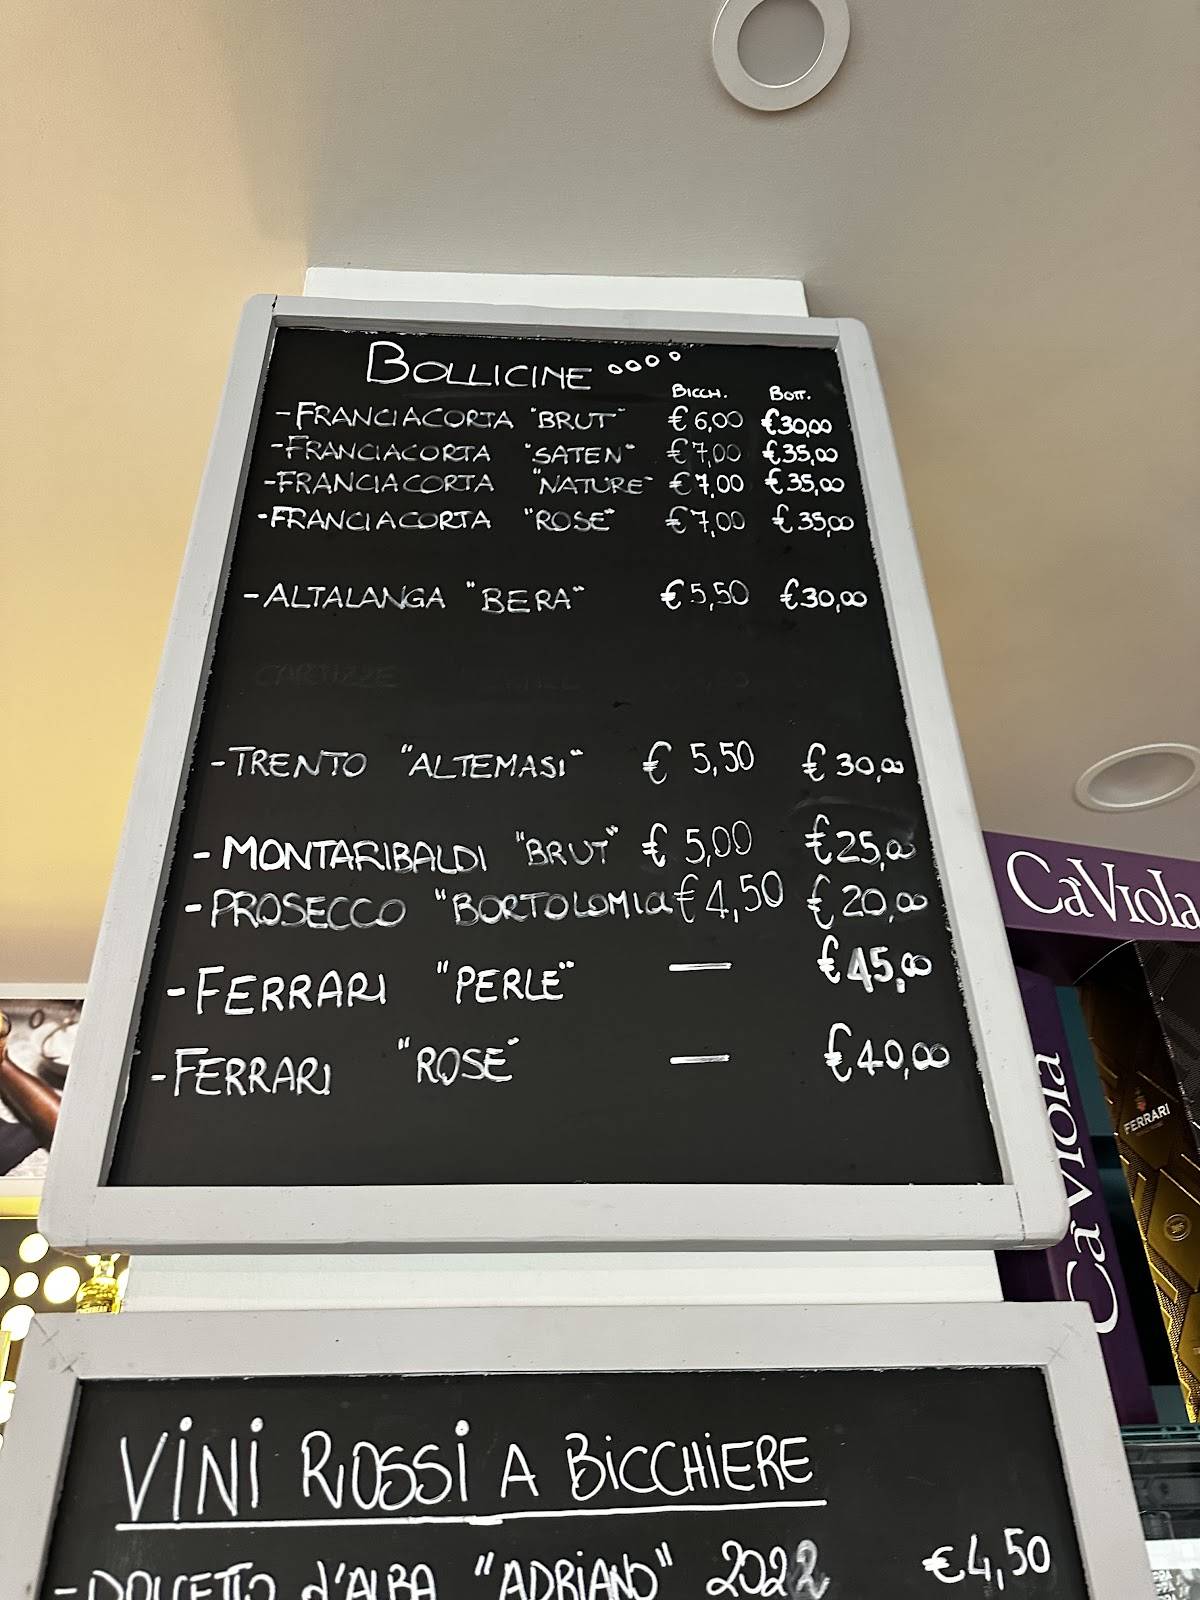 BOLLICINE
BICCH. BOTT.
-FRANCIACORTA "BRUT" €6,00 €30,00
-FRANCIACORTA "SATEN" €7,00 €35,00
-FRANCIACORTA "NATURE" €7,00 €35,00
-FRANCIACORTA "ROSE" €7,00 €35,00
-ALTALANGA "BERA" €5,50 €30,00
CARTIZZE
-TRENTO "ALTEMASI" € 5,50 € 30,00
-MONTARIBALDI "BRUT" € 5,00 €25,00
-PROSECCO "BORTOLOMIA €4,50 € 20,00
-FERRARI "PERLE" — €45,00
-FERRARI "ROSE" — €40,00
VINI ROSSI A BICCHIERE
-DOLCETTO d'ALBA "ADRIANO" 2022 €4,50
Ca'Viola
Ca'Viola
FERRARI